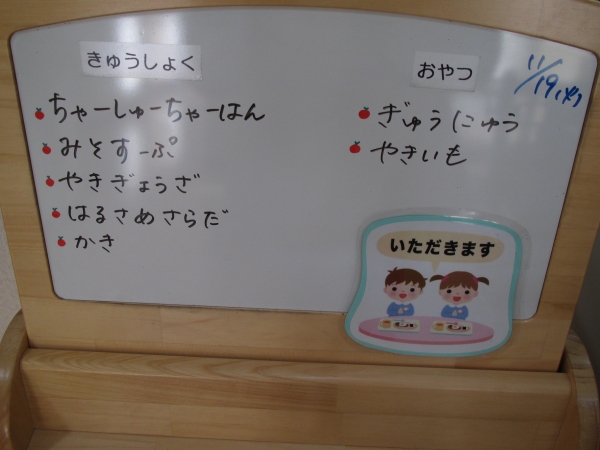 きゅうしょく
おやつ
11/19(火)
ちゃーしゅーちゃーはん
みそすーぷ
やきぎょうざ
はるさめさらだ
かき
ぎゅうにゅう
やきいも
いただきます